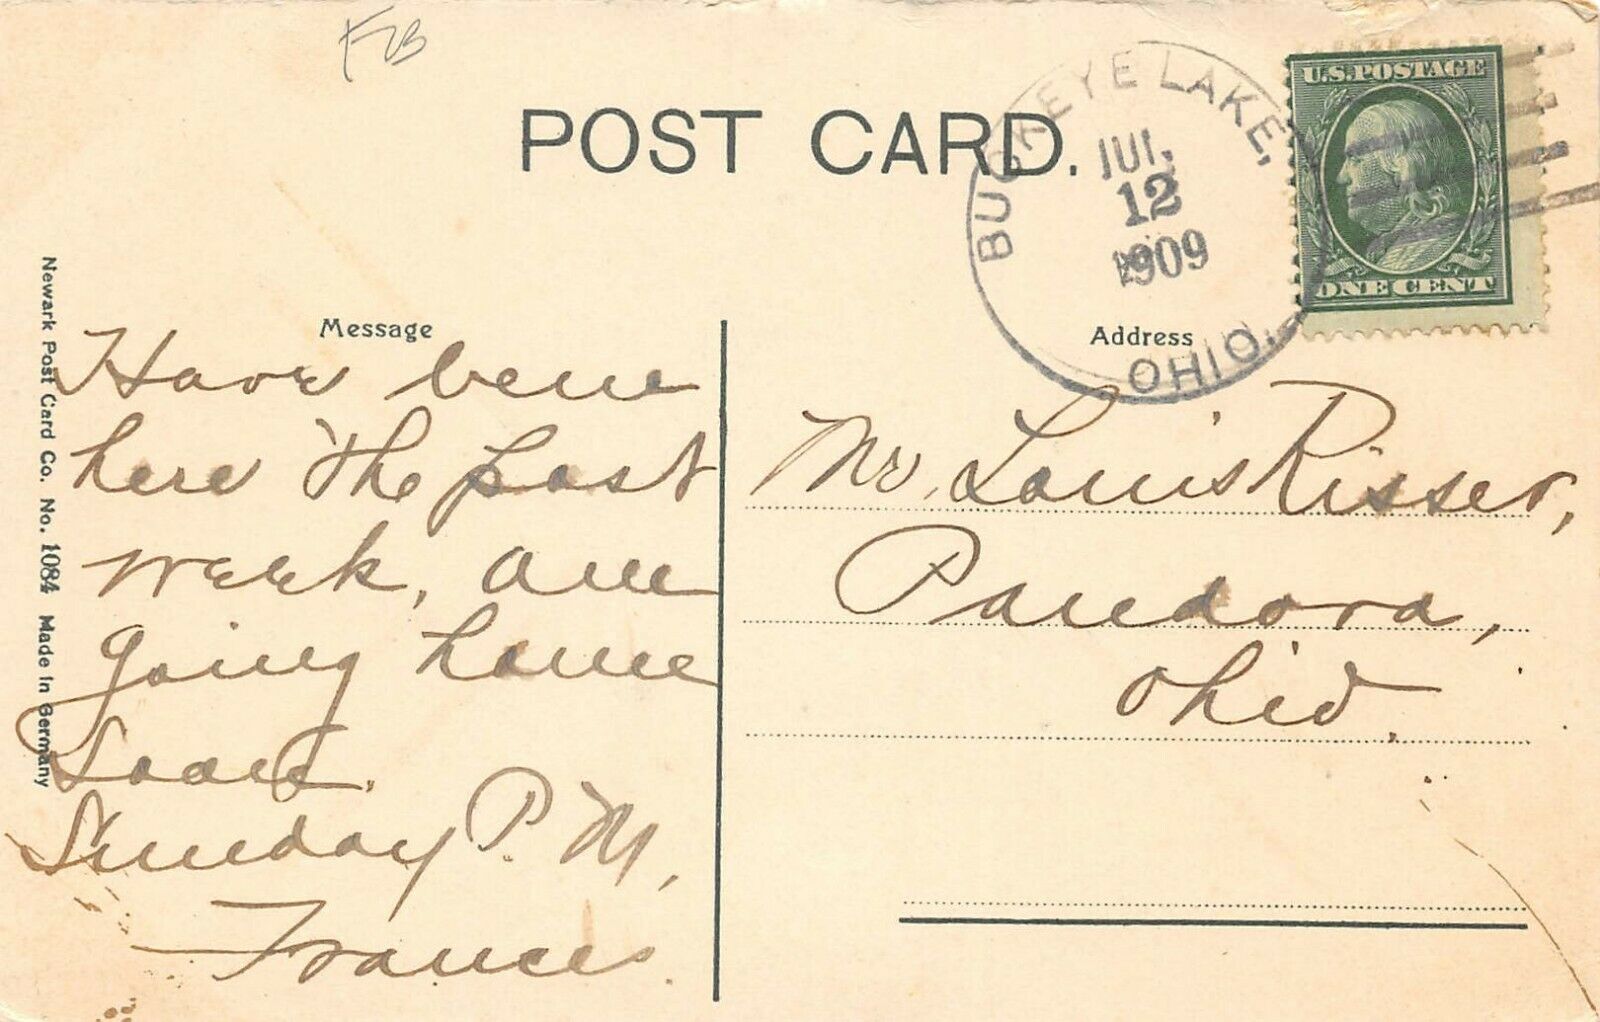 FZB
POST CARD.
BUCKEYE LAKE,
JUL
12
1909
OHIO.
U.S. POSTAGE
ONE CENT
Newark Post Card Co. No. 1084 Made in Germany
Message
Have been
here the past
week, am
going home
soon.
Sunday P.M,
Frances
Address
Mr. Louis Risser,
Pandora,
Ohio.